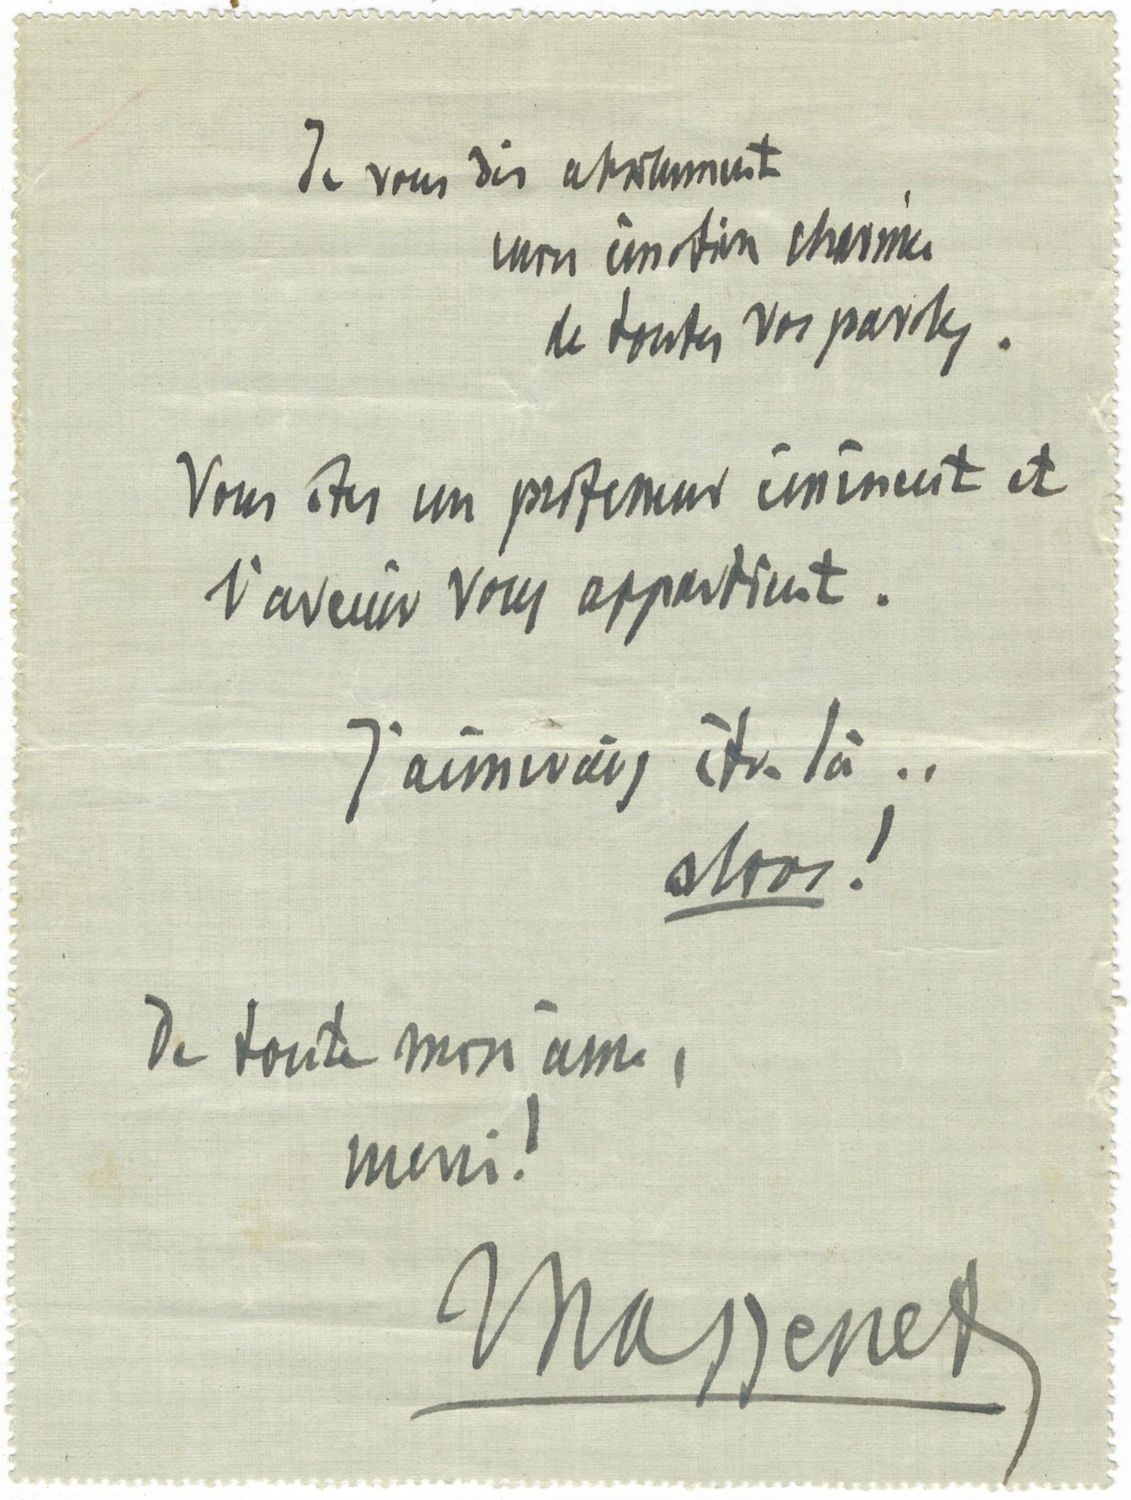 Je vous dis absolument
mon émotion charmée
de toutes vos paroles.
Vous êtes un professeur éminent et
l'avenir vous appartient.
J'aimerais être là ..
alors !
De toute mon âme,
merci !
Massenet